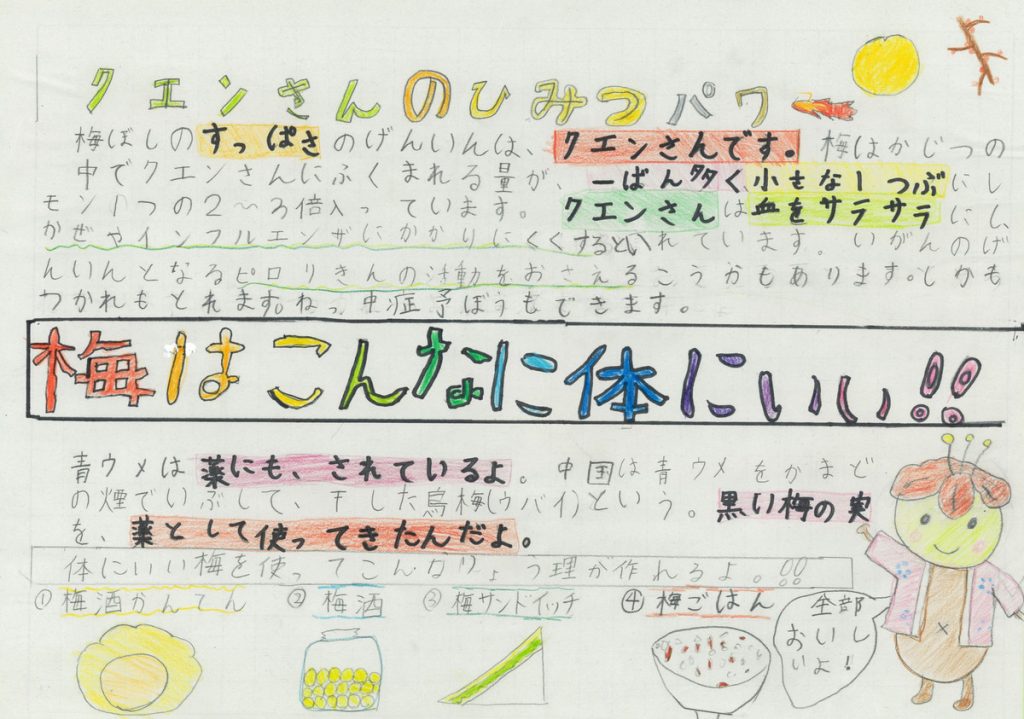 クエンさんのひみつパワー
梅ぼしのすっぱさのげんいんは、クエンさんです。梅はかじつの
中でクエンさんにふくまれる量が、一ばん多く、小さな1つぶにレ
モン1つの2〜3倍入っています。クエンさんは血をサラサラにし、
かぜやインフルエンザにかかりにくくするといわれています。いがんのげ
んいんとなるピロリきんの活動をおさえるこうかもあります。しかも
つかれもとれます。ねっ中症予ぼうもできます。
梅はこんなに体にいい!!
青ウメは薬にも、されているよ。中国は青ウメをかまど
の煙でいぶして、干した烏梅(ウバイ)という。黒い梅の実
を、薬として使ってきたんだよ。
体にいい梅を使ってこんなりょう理が作れるよ。!!
①梅酒かんてん ②梅酒 ③梅サンドイッチ ④梅ごはん
全部
おいし
いよ!